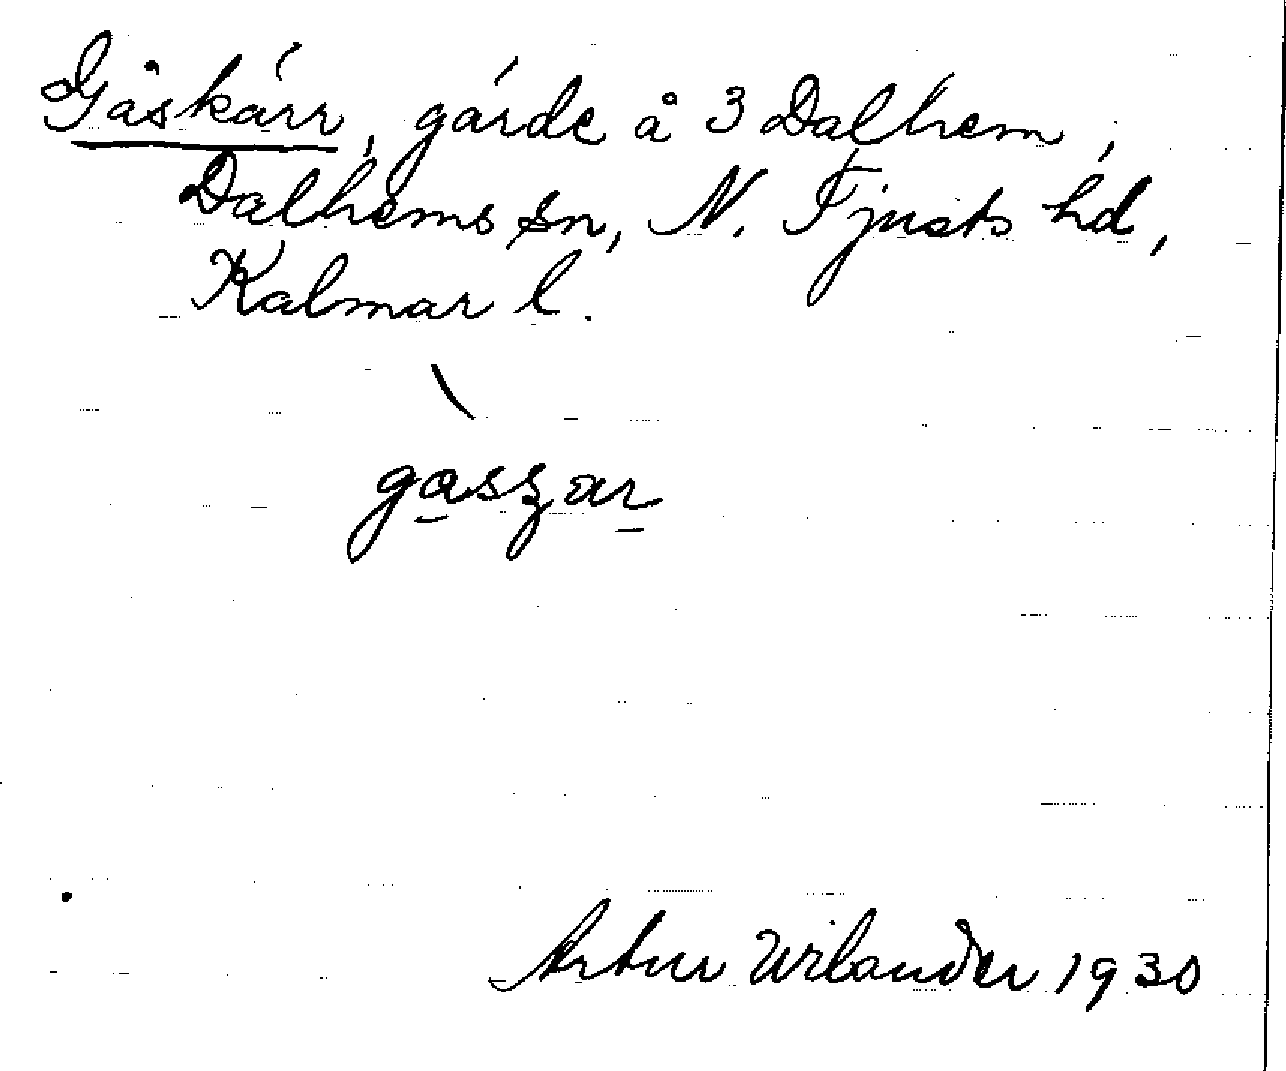 Gåskärr, gärde å 3 Dalhem,
Dalhems sn, N. Tjusts hd,
Kalmar l.
\
gaszar
Artur Wilander 1930